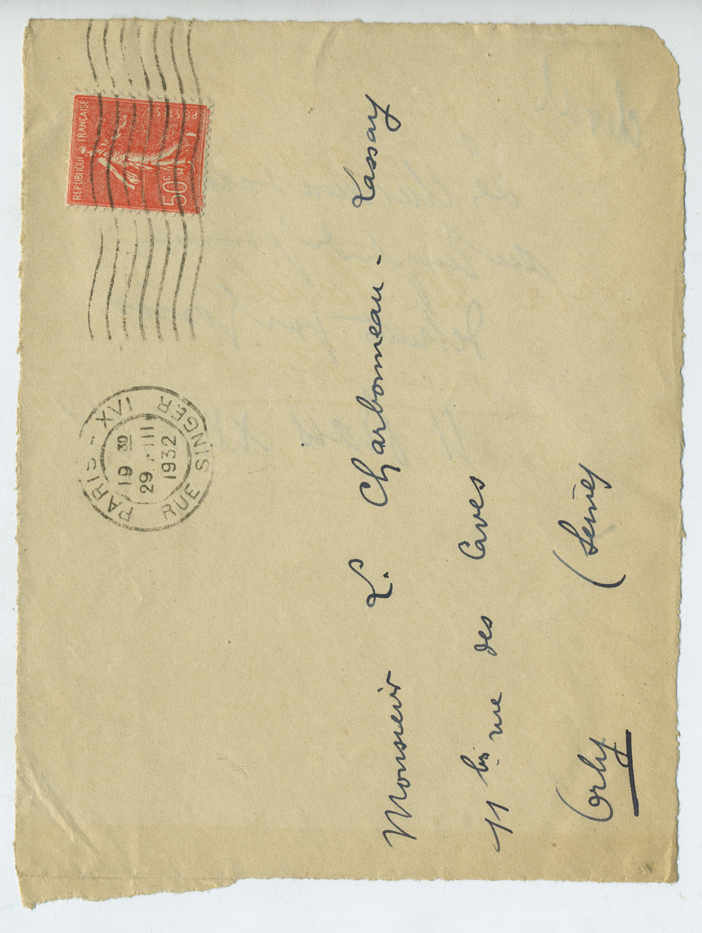 REPUBLIQUE FRANÇAISE
POSTES
50c
PARIS - XVI
RUE SINGER
19 30
29 · III
1932
Monsieur L. Charbonneau-Lassay
11 bis rue des Caves
Orly (Seine)